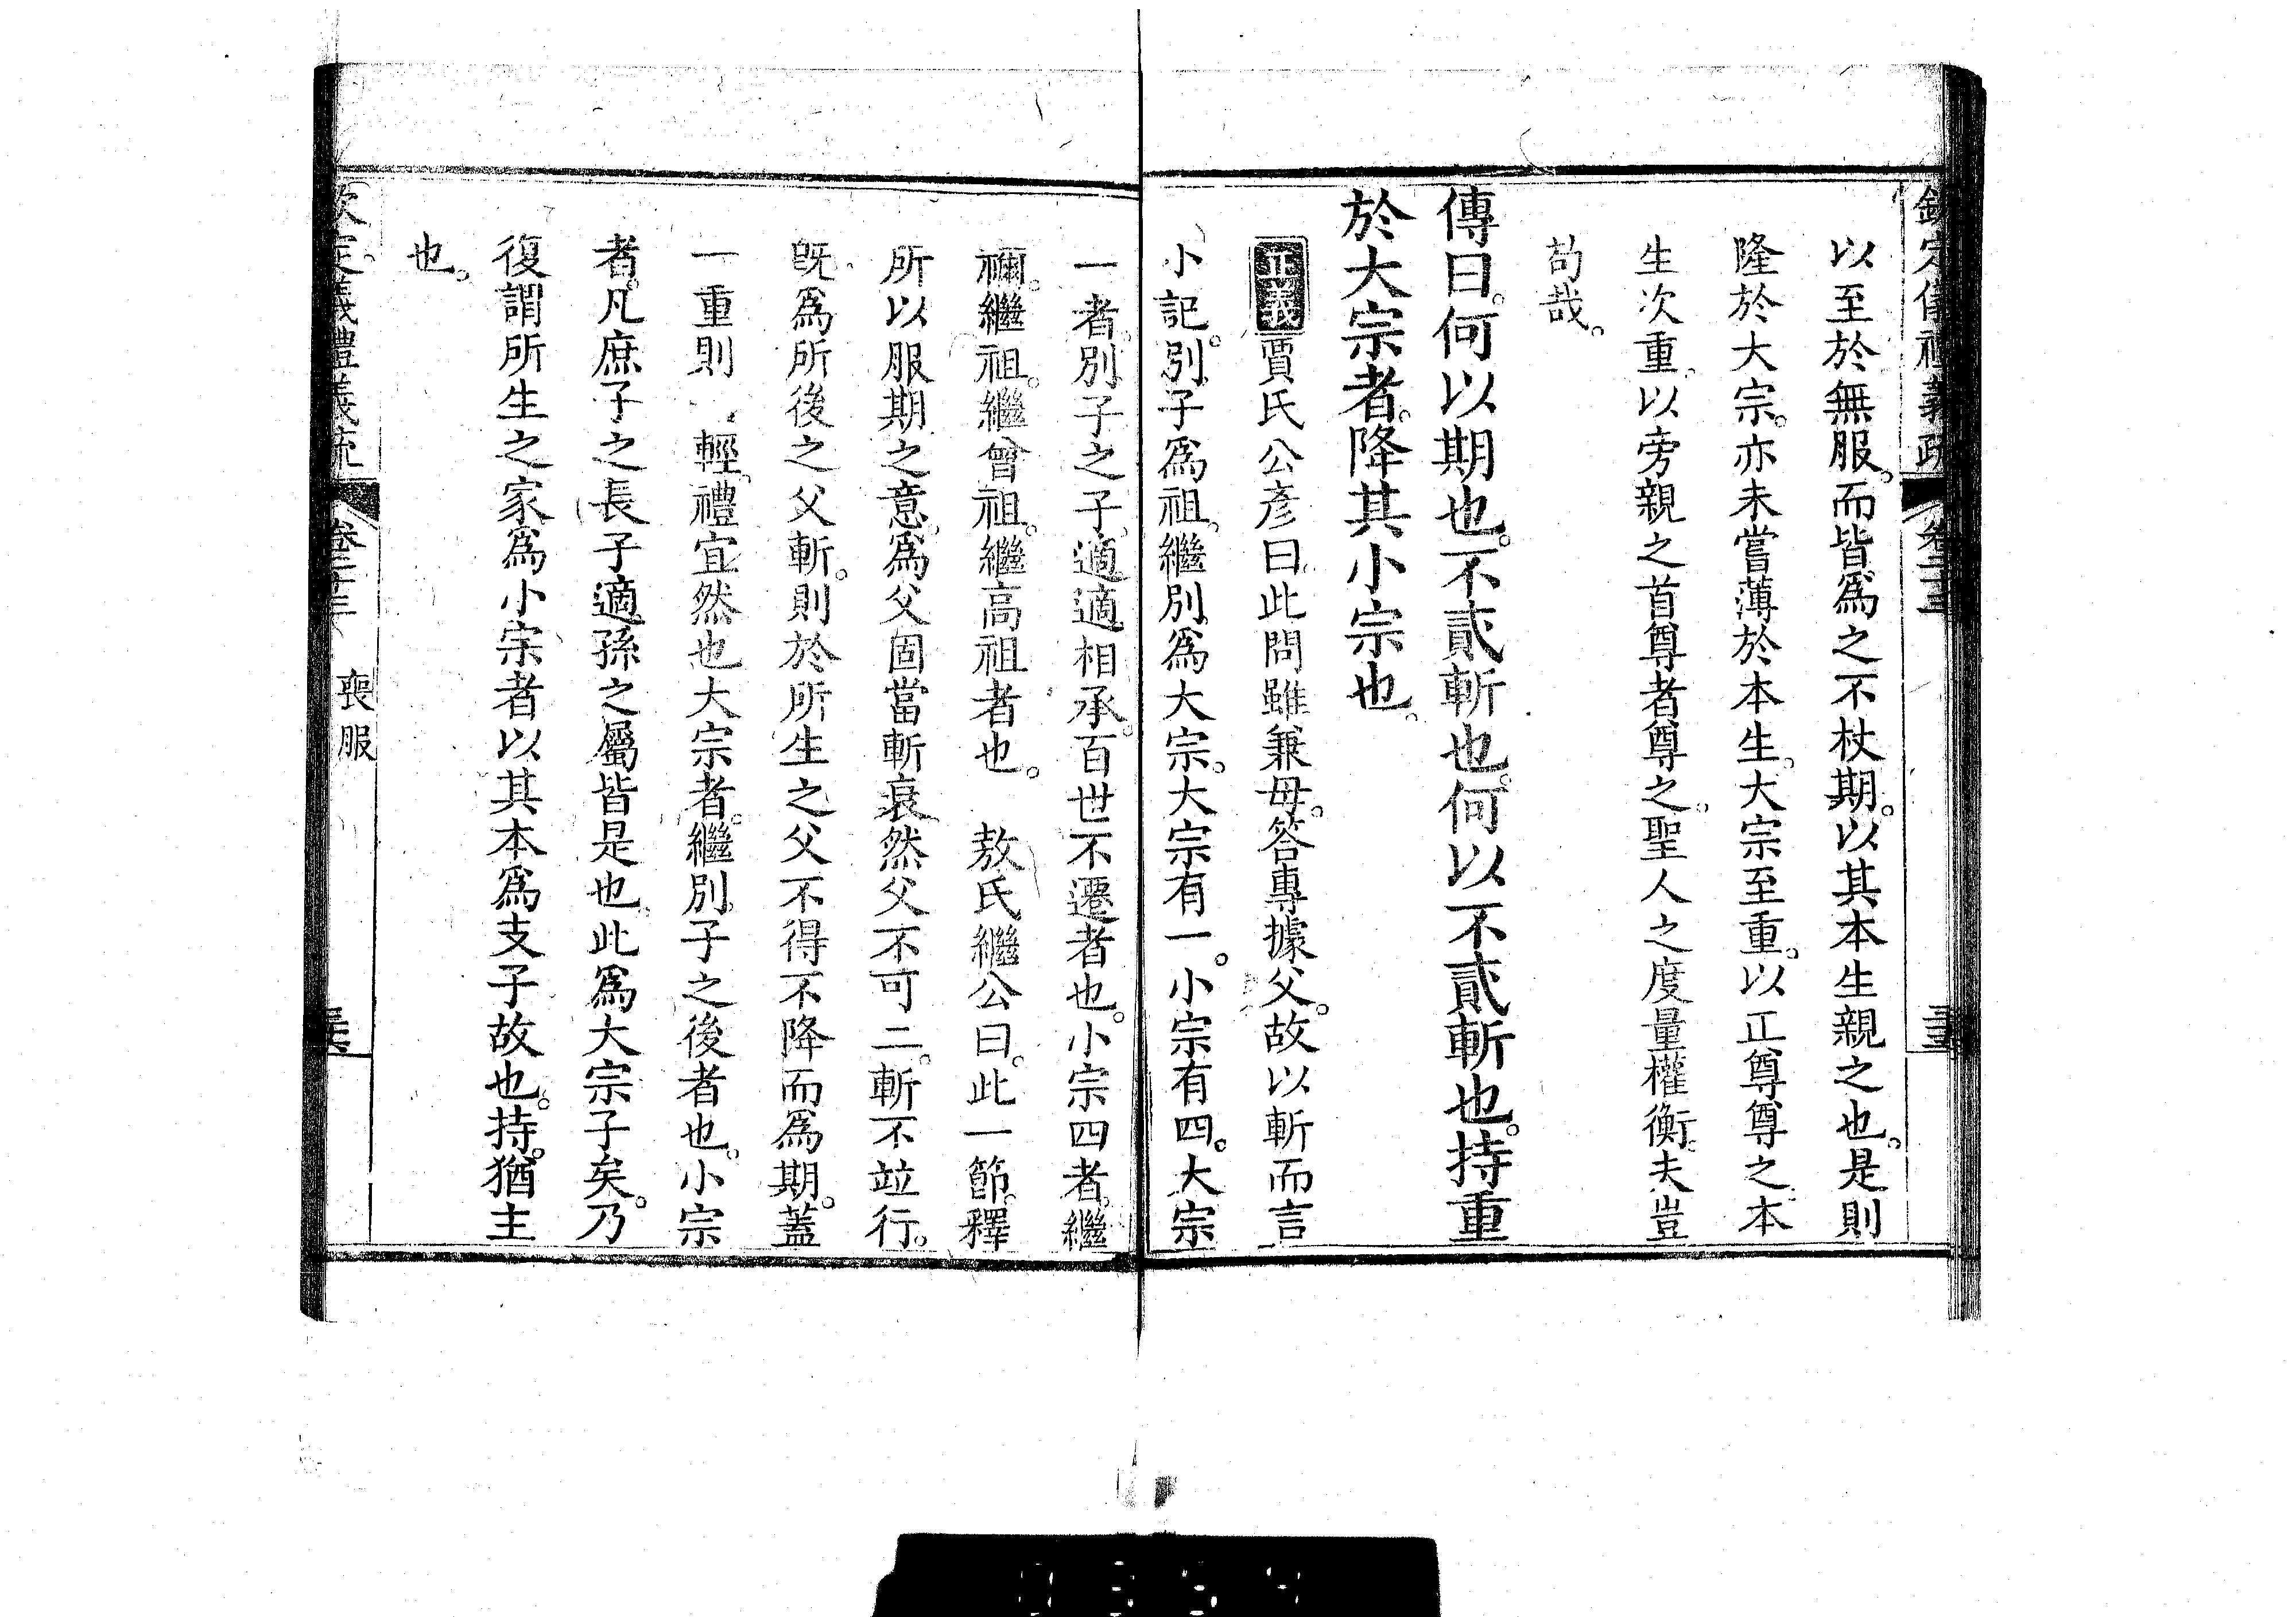 欽定儀禮義疏 卷二十三
以至於無服。而皆爲之不杖期。以其本生親之也。是則
隆於大宗。亦未嘗薄於本生。大宗至重。以正尊尊之。本
生次重。以旁親之首尊者尊之。聖人之度量權衡。夫豈
苟哉。
傳曰。何以期也。不貳斬也。何以不貳斬也。持重
於大宗者。降其小宗也。
正義 賈氏公彥曰。此問雖兼母。答專據父。故以斬而言
小記。別子爲祖。繼別爲大宗。大宗有一。小宗有四。大宗
一者。別子之子。適適相承。百世不遷者也。小宗四者。繼
禰。繼祖。繼曾祖。繼高祖者也。 敖氏繼公曰。此一節。釋
所以服期之意。爲父固當斬衰。然父不可二。斬不竝行。
旣爲所後之父斬。則於所生之父不得不降而爲期。蓋
一重則 輕。禮宜然也。大宗者。繼別子之後者也。小宗
者。凡庶子之長子適孫之屬皆是也。此爲大宗子矣。乃
復謂所生之家爲小宗者。以其本爲支子故也。持。猶主
也。
欽定儀禮義疏 卷二十三 喪服